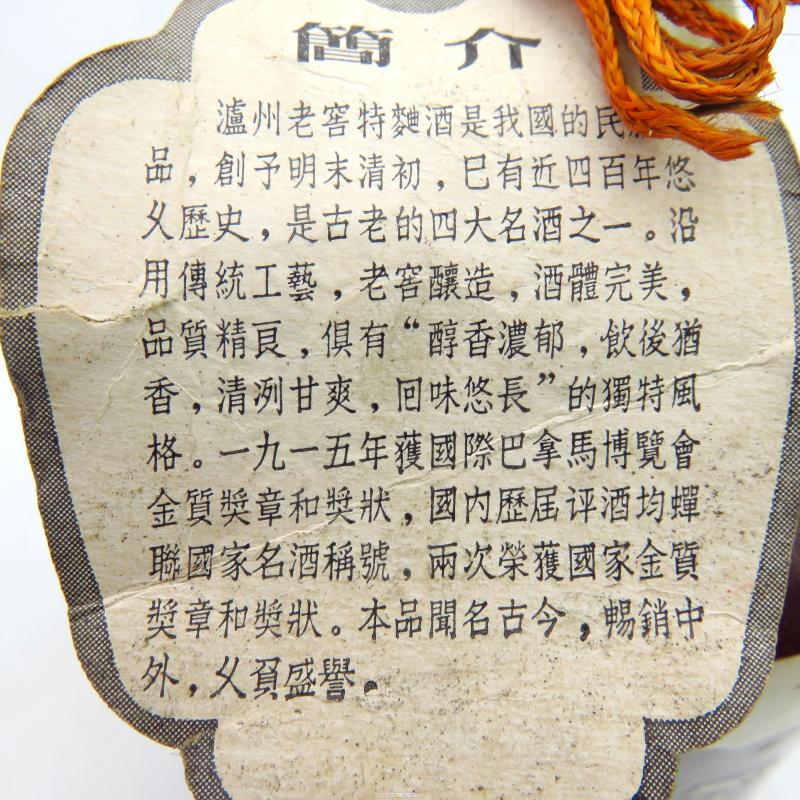 簡介
瀘州老窖特麯酒是我國的民
品，創予明末清初，巳有近四百年悠
乆歷史，是古老的四大名酒之一。沿
用傳統工藝，老窖釀造，酒體完美，
品質精良，俱有“醇香濃郁，飲後猶
香，清洌甘爽，回味悠長”的獨特風
格。一九一五年獲國際巴拿馬博覽會
金質獎章和獎狀，國内歷届评酒均蟬
聯國家名酒稱號，兩次榮獲國家金質
獎章和獎狀。本品聞名古今，暢銷中
外，乆負盛譽。